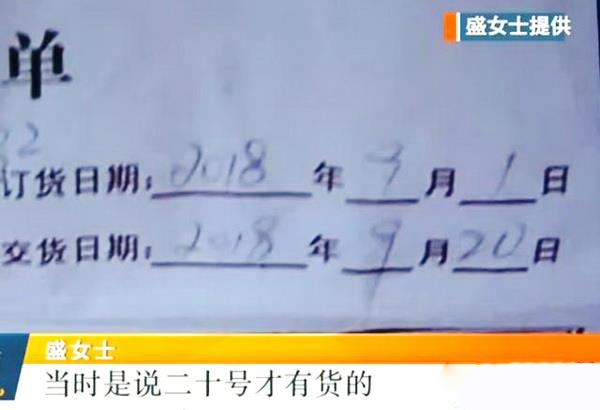 盛女士提供
单
02
订货日期：2018年9月1日
交货日期：2018年9月20日
盛女士
当时是说二十号才有货的